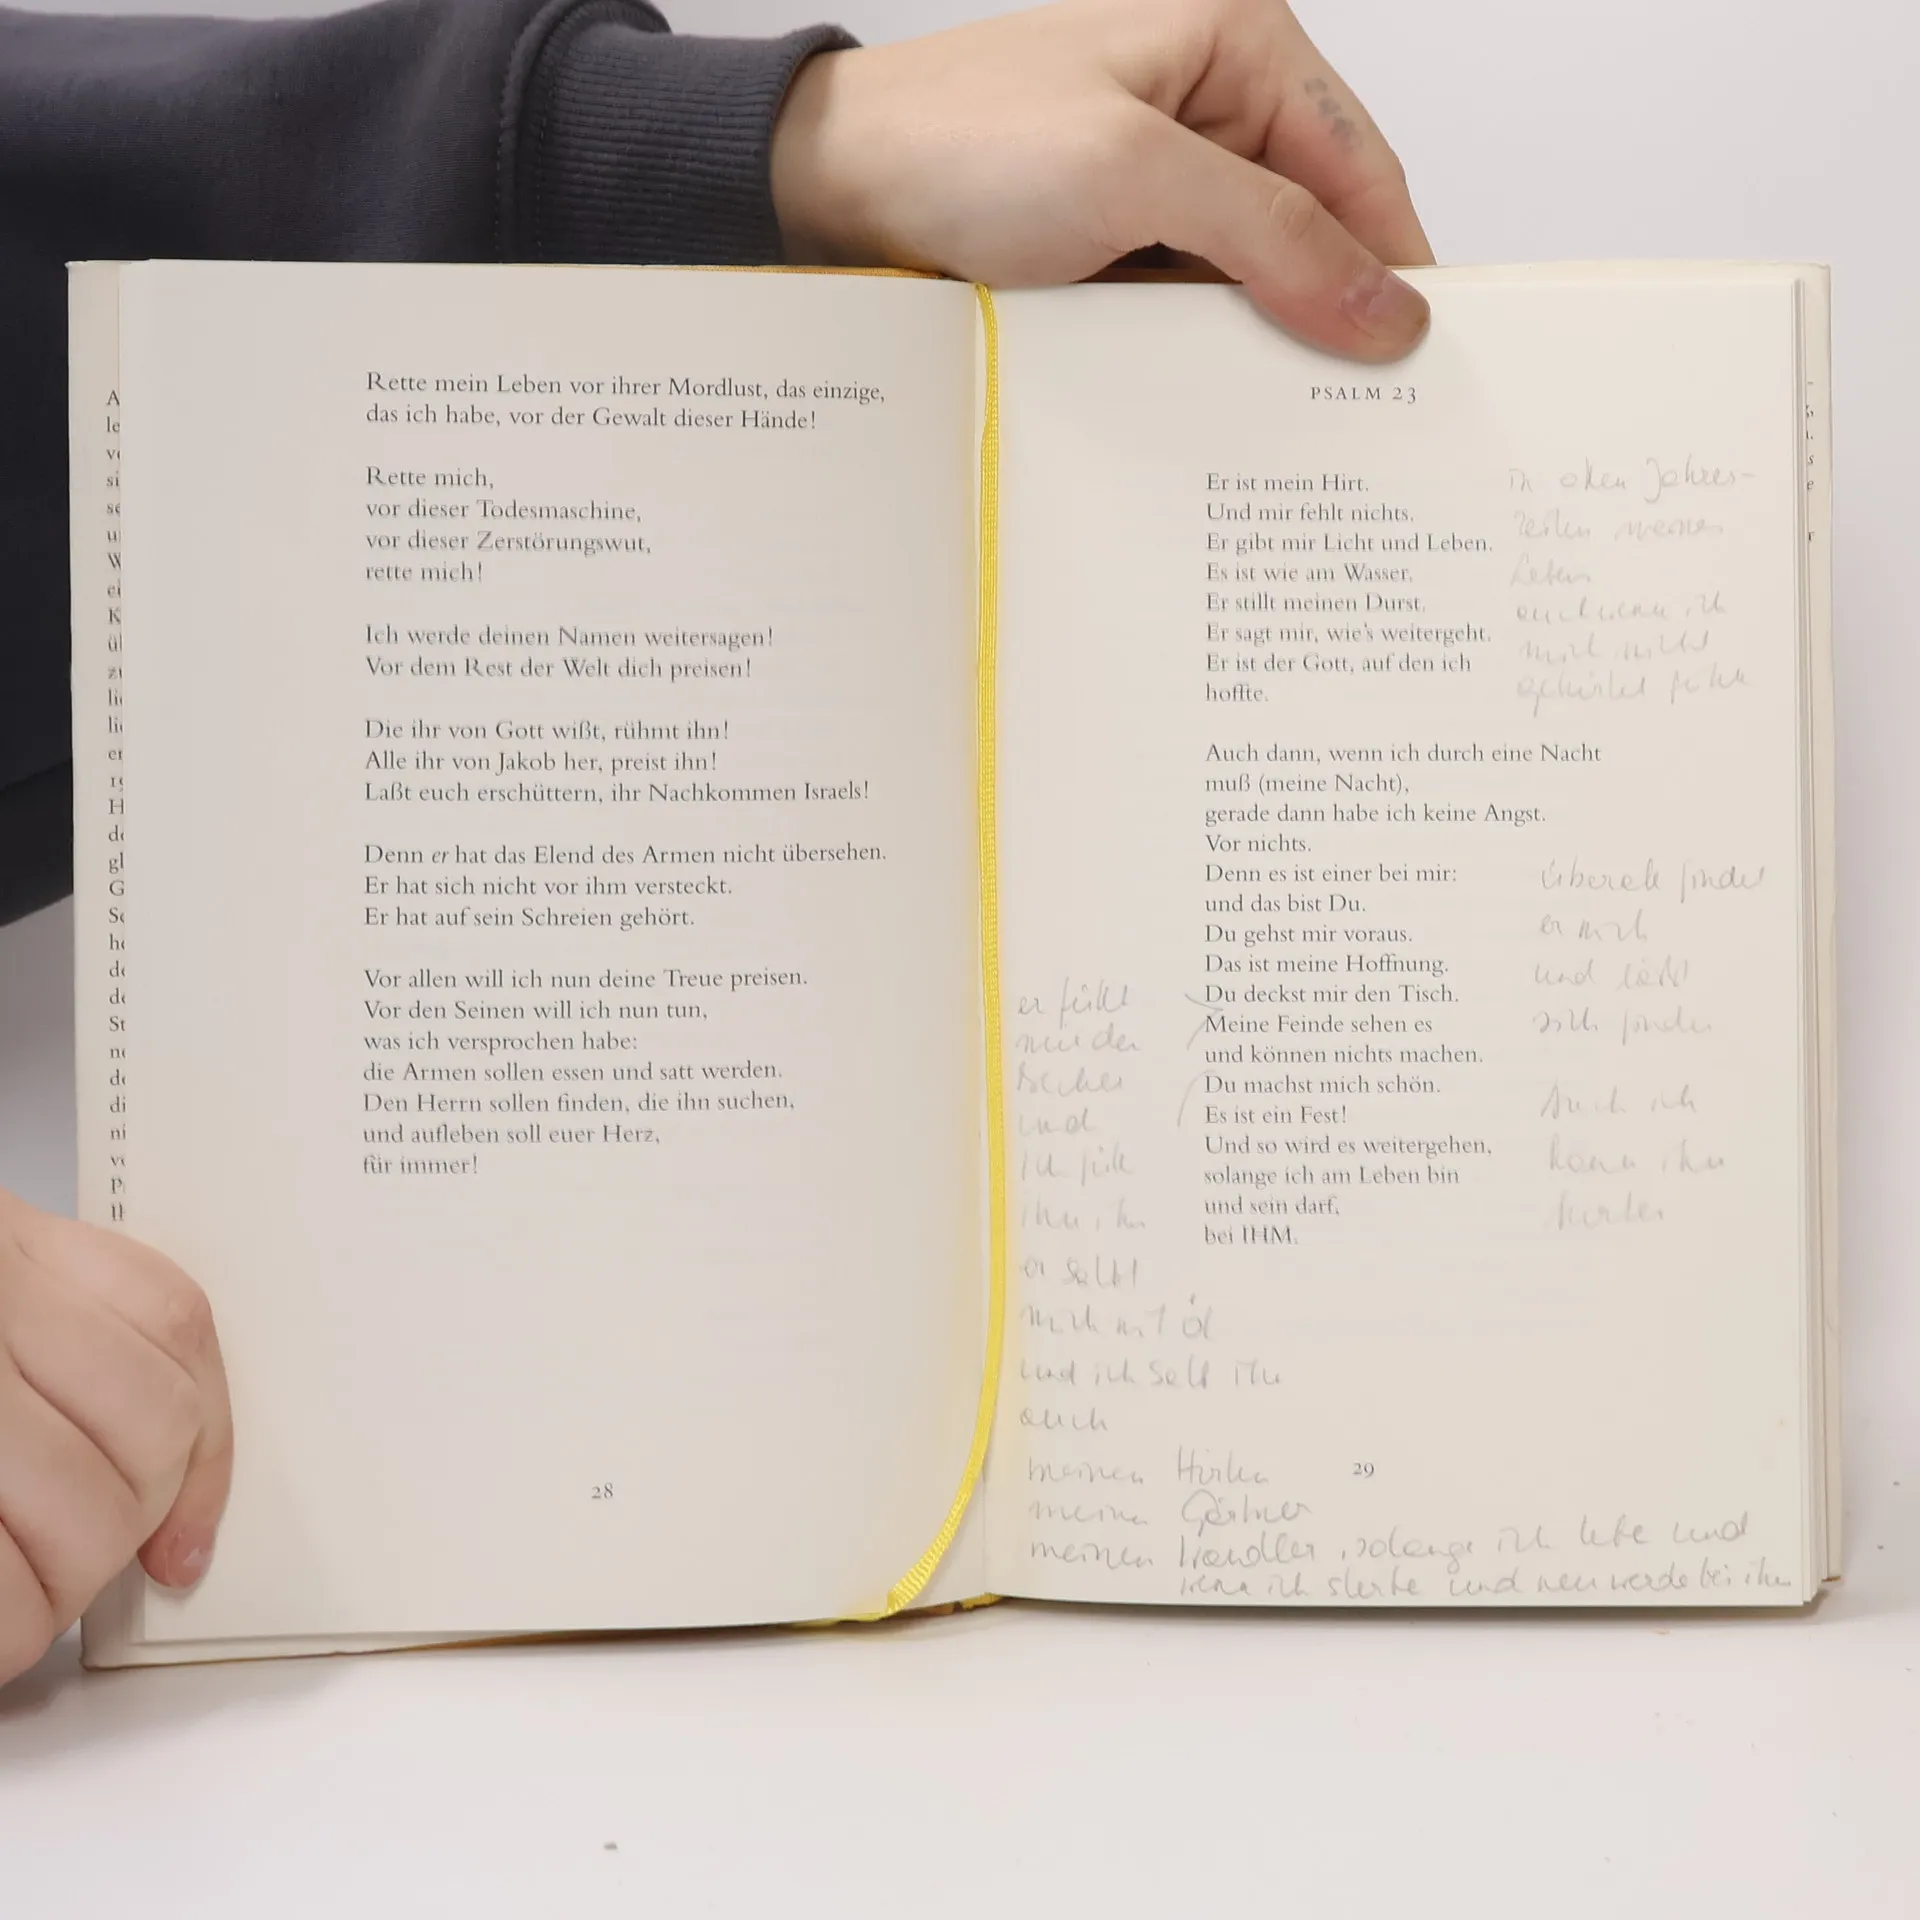 Rette mein Leben vor ihrer Mordlust, das einzige,
das ich habe, vor der Gewalt dieser Hände!
Rette mich,
vor dieser Todesmaschine,
vor dieser Zerstörungswut,
rette mich!
Ich werde deinen Namen weitersagen!
Vor dem Rest der Welt dich preisen!
Die ihr von Gott wißt, rühmt ihn!
Alle ihr von Jakob her, preist ihn!
Laßt euch erschüttern, ihr Nachkommen Israels!
Denn er hat das Elend des Armen nicht übersehen.
Er hat sich nicht vor ihm versteckt.
Er hat auf sein Schreien gehört.
Vor allen will ich nun deine Treue preisen.
Vor den Seinen will ich nun tun,
was ich versprochen habe:
die Armen sollen essen und satt werden.
Den Herrn sollen finden, die ihn suchen,
und aufleben soll euer Herz,
für immer!
28
PSALM 23
Er ist mein Hirt.
Und mir fehlt nichts.
Er gibt mir Licht und Leben.
Es ist wie am Wasser.
Er stillt meinen Durst.
Er sagt mir, wie's weitergeht.
Er ist der Gott, auf den ich
hoffte.
Auch dann, wenn ich durch eine Nacht
muß (meine Nacht),
gerade dann habe ich keine Angst.
Vor nichts.
Denn es ist einer bei mir:
und das bist Du.
Du gehst mir voraus.
Das ist meine Hoffnung.
Du deckst mir den Tisch.
Meine Feinde sehen es
und können nichts machen.
Du machst mich schön.
Es ist ein Fest!
Und so wird es weitergehen,
solange ich am Leben bin
und sein darf,
bei IHM.
in allen Jahres-
zeiten meines
Lebens
auch wenn ich
mich nicht
gehütet fühle
überall findet
er mich
und lässt
sich finden
Auch ich
kann ihn
er füllt
mir den
Becher
und
ich fülle
ihn ihm
er salbt
mich mit Öl
und ich salb ihn
auch
meinen Hirten
meinen Gärtner
meinen , solange ich lebe und
wenn ich sterbe und neu werde bei ihm
29